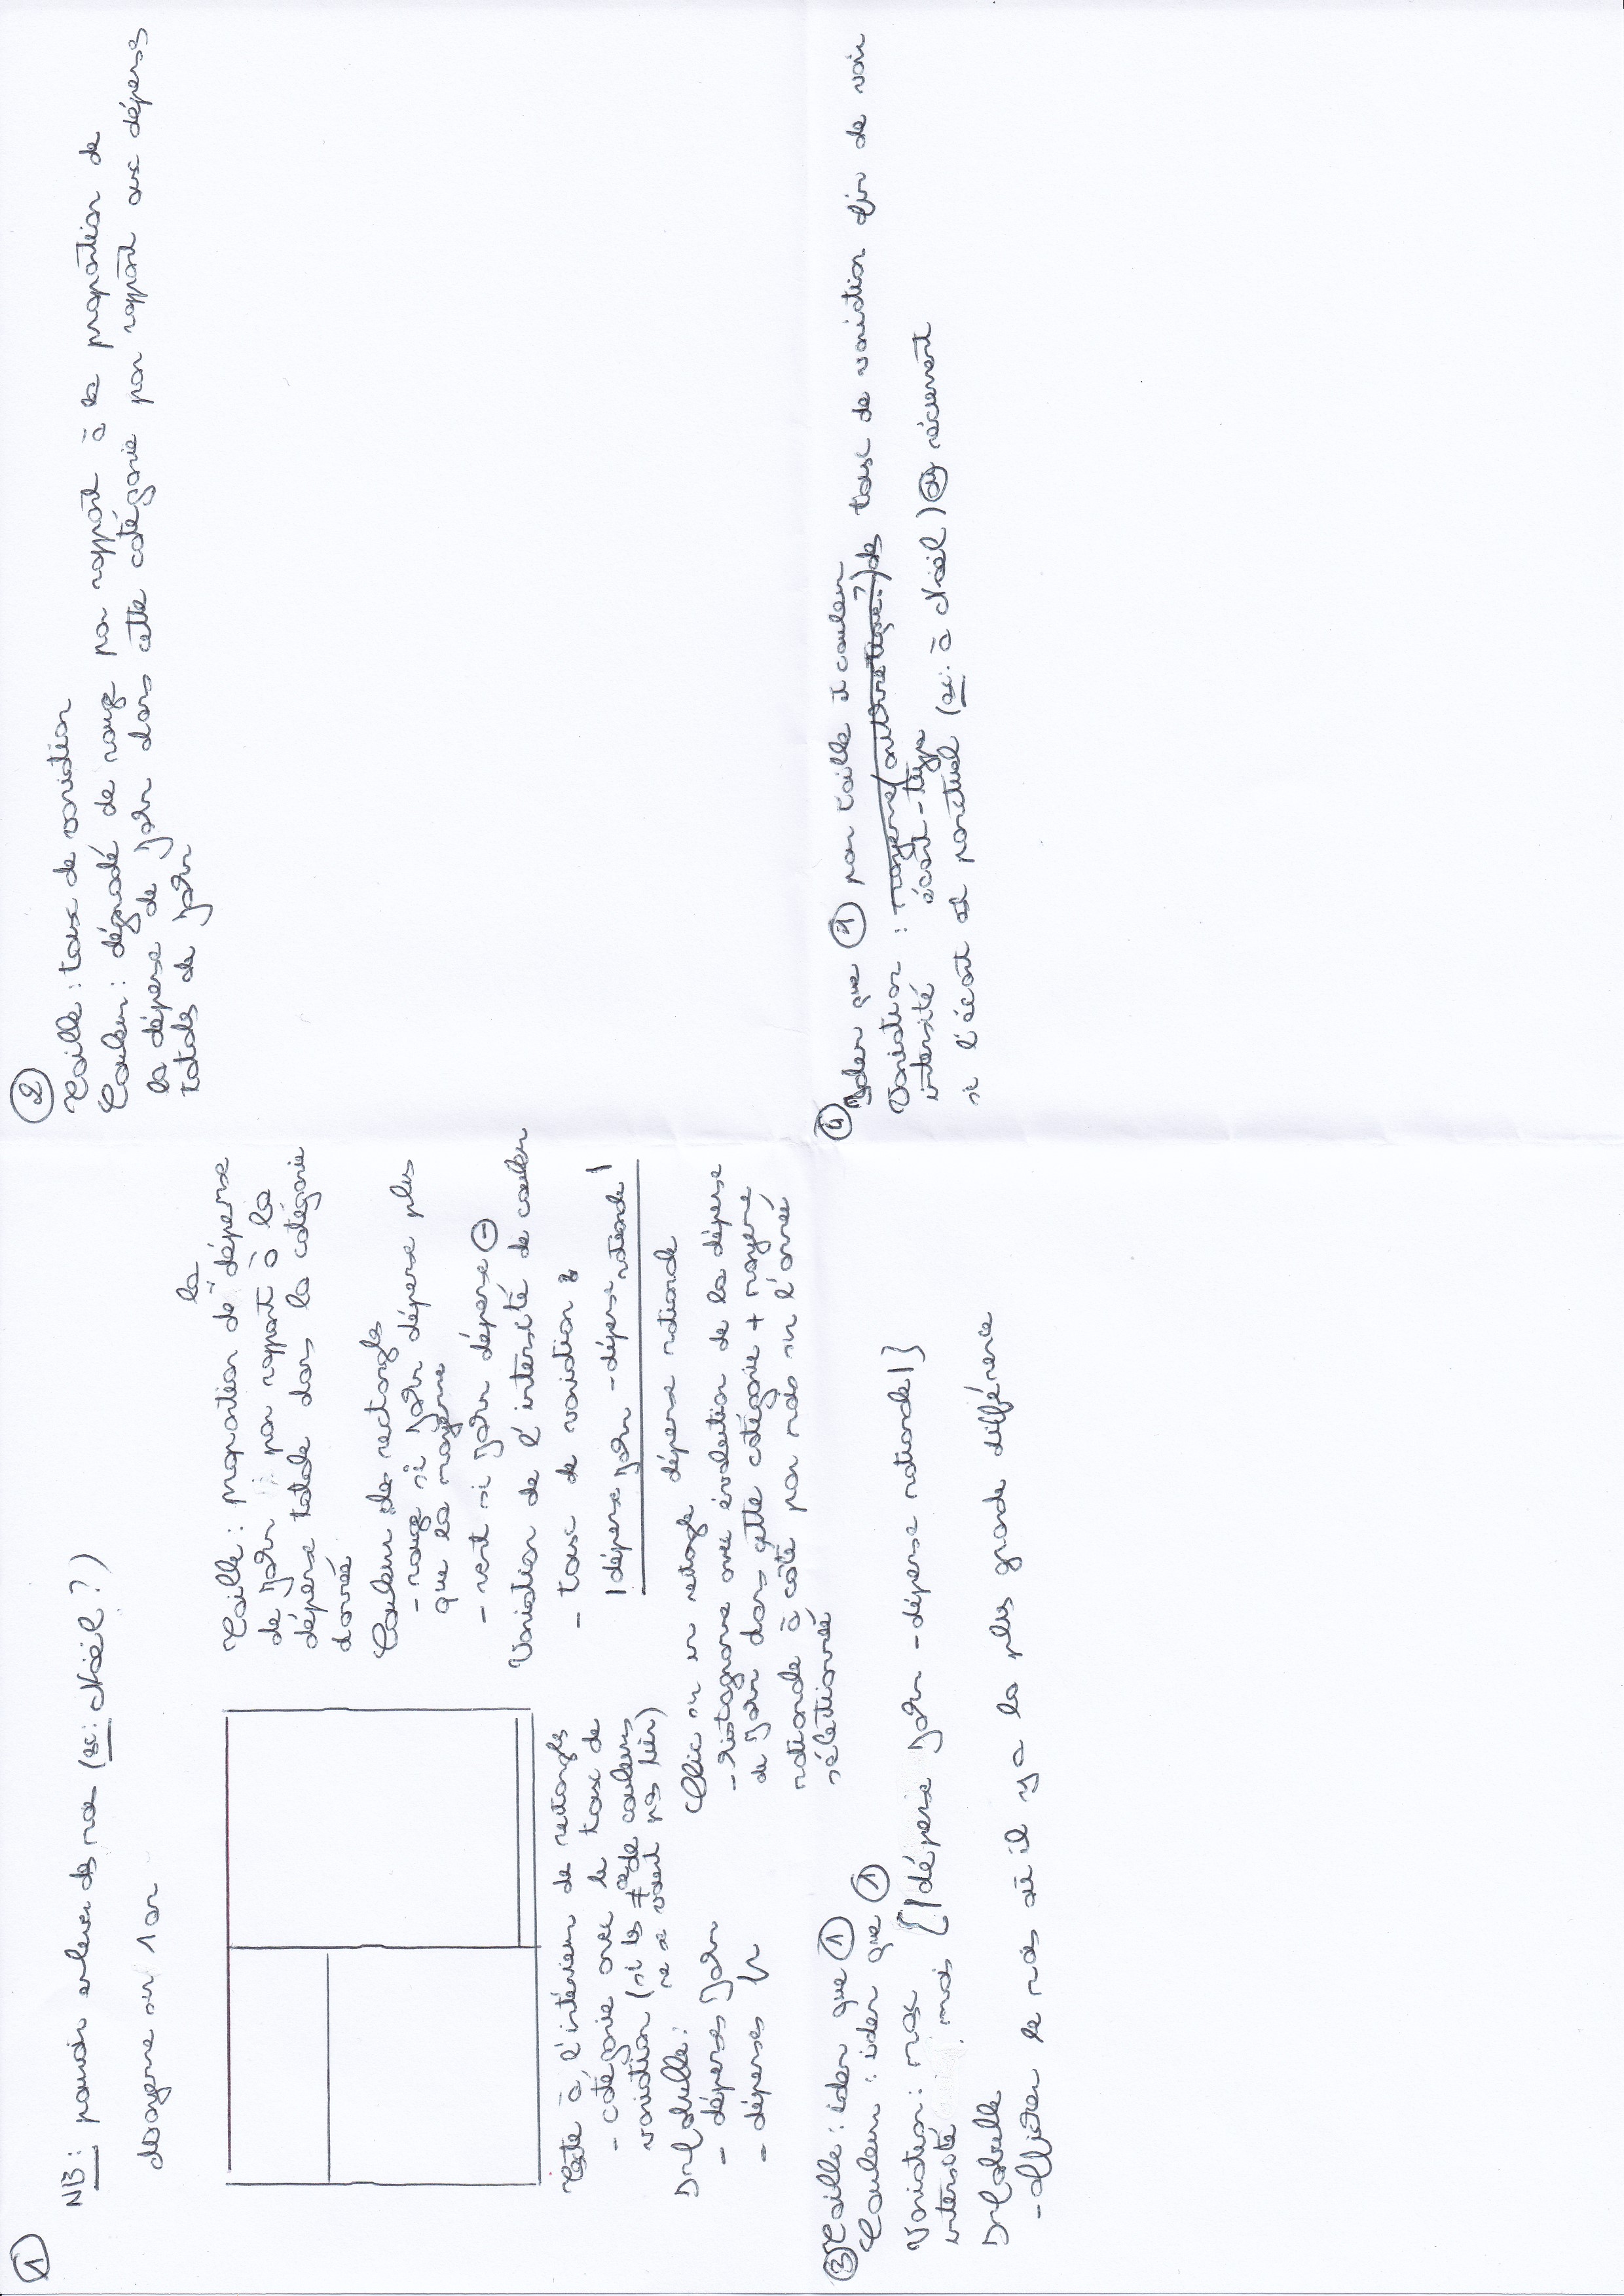 ①
NB : pouvoir enlever des mois (ex : Noël ?)
Moyenne sur 1 an
Taille : proportion de la dépense
de John par rapport à la
dépense totale dans la catégorie
donnée
Couleur des rectangles
- rouge si John dépense plus
que la moyenne
- vert si John dépense ⊖
Variation de l'intensité de couleur
- taux de variation :
|dépense John - dépense nationale|
dépense nationale
Texte à l'intérieur des rectangles
- catégorie avec le taux de
variation (si les ≠ce de couleurs
ne se voient pas bien)
Infobulle :
- dépenses John
- dépenses fr
Clic sur un rectangle
- histogramme avec évolution de la dépense
de John dans cette catégorie + moyenne
nationale à côté par mois sur l'année
sélectionnée
②
Taille : taux de variation
Couleur : dégradé de rouge par rapport à la proportion de
la dépense de John dans cette catégorie par rapport aux dépenses
totales de John
③ Taille : idem que ①
Couleur : idem que ①
Variation : max {|dépense John - dépense nationale|}
intensité mois
Infobulle
- afficher le mois où il y a la plus grande différence
④
Idem que ① pour taille et couleur
Variation : moyenne (arithmétique ?) des taux de variation afin de voir
intensité écart-type
si l'écart est ponctuel (ex : à Noël) ou récurrent